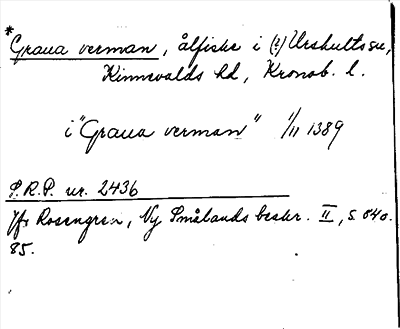 *Graua verman, ålfiske i (?) Urshults sn,
Kinnevalds hd, Kronob. l.
i "Graua verman" 1/11 1389
S.R.P. nr. 2436
Jfr Rosengren, Ny Smålands beskr. II, s. 840.
85.